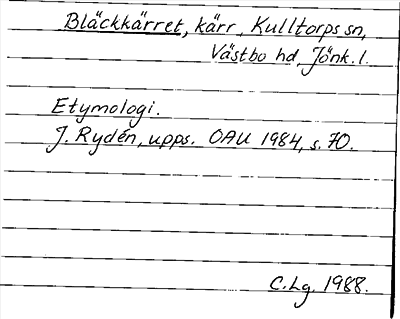 Bläckkärret, kärr, Kulltorps sn,
Västbo hd, Jönk. l.
Etymologi.
J. Rydén, upps. OAU 1984, s. 70.
C.Lg. 1988.